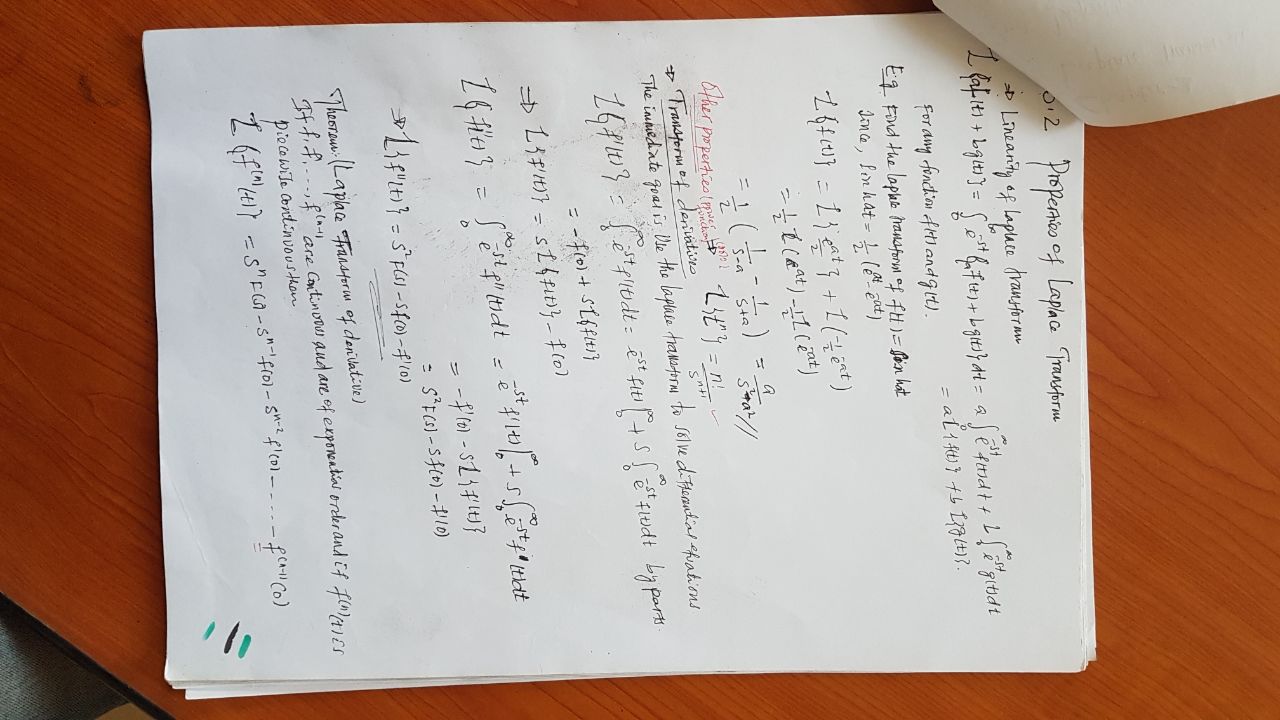 0.2 Properties of Laplace Transform
⇒ Linearity of laplace transform
L{af(t) + bg(t)} = ∫₀^∞ e^-st {a f(t) + b g(t)} dt = a ∫₀^∞ e^-st f(t) dt + b ∫₀^∞ e^-st g(t) dt
= a L{f(t)} + b L{g(t)}.
For any function f(t) and g(t).
E.g Find the laplace transform of f(t) = Sin hat
Since, Sin hat = 1/2 (e^at - e^-at)
L{f(t)} = L{e^at/2} + L(-1/2 e^-at)
= 1/2 L(e^at) - 1/2 L(e^-at)
= 1/2 (1/(s-a) - 1/(s+a)) = a/(s²-a²) //
Other properties (power function) L{t^n} = n!/s^(n+1)
⇒ Transform of derivatives
The immediate goal is Use the laplace transform to solve differential equations
L{f'(t)} = ∫₀^∞ e^-st f'(t) dt = e^-st f(t) |₀^∞ + s ∫₀^∞ e^-st f(t) dt by parts.
= -f(0) + sL{f(t)}
⇒ L{f'(t)} = sL{f(t)} - f(0)
L{f''(t)} = ∫₀^∞ e^-st f''(t) dt = e^-st f'(t) |₀^∞ + s ∫₀^∞ e^-st f'(t) dt
= -f'(0) - sL{f'(t)}
= s² F(s) - s f(0) - f'(0)
⇒ L{f''(t)} = s² F(s) - s f(0) - f'(0)
Theorem: (Laplace Transform of derivative)
If f, f', ..., f^(n-1) are continuous and are of exponential order and if f^(n)(t) is
piecewise continuous then
L{f^(n)(t)} = s^n F(s) - s^(n-1) f(0) - s^(n-2) f'(0) - ..... - f^(n-1)(0)